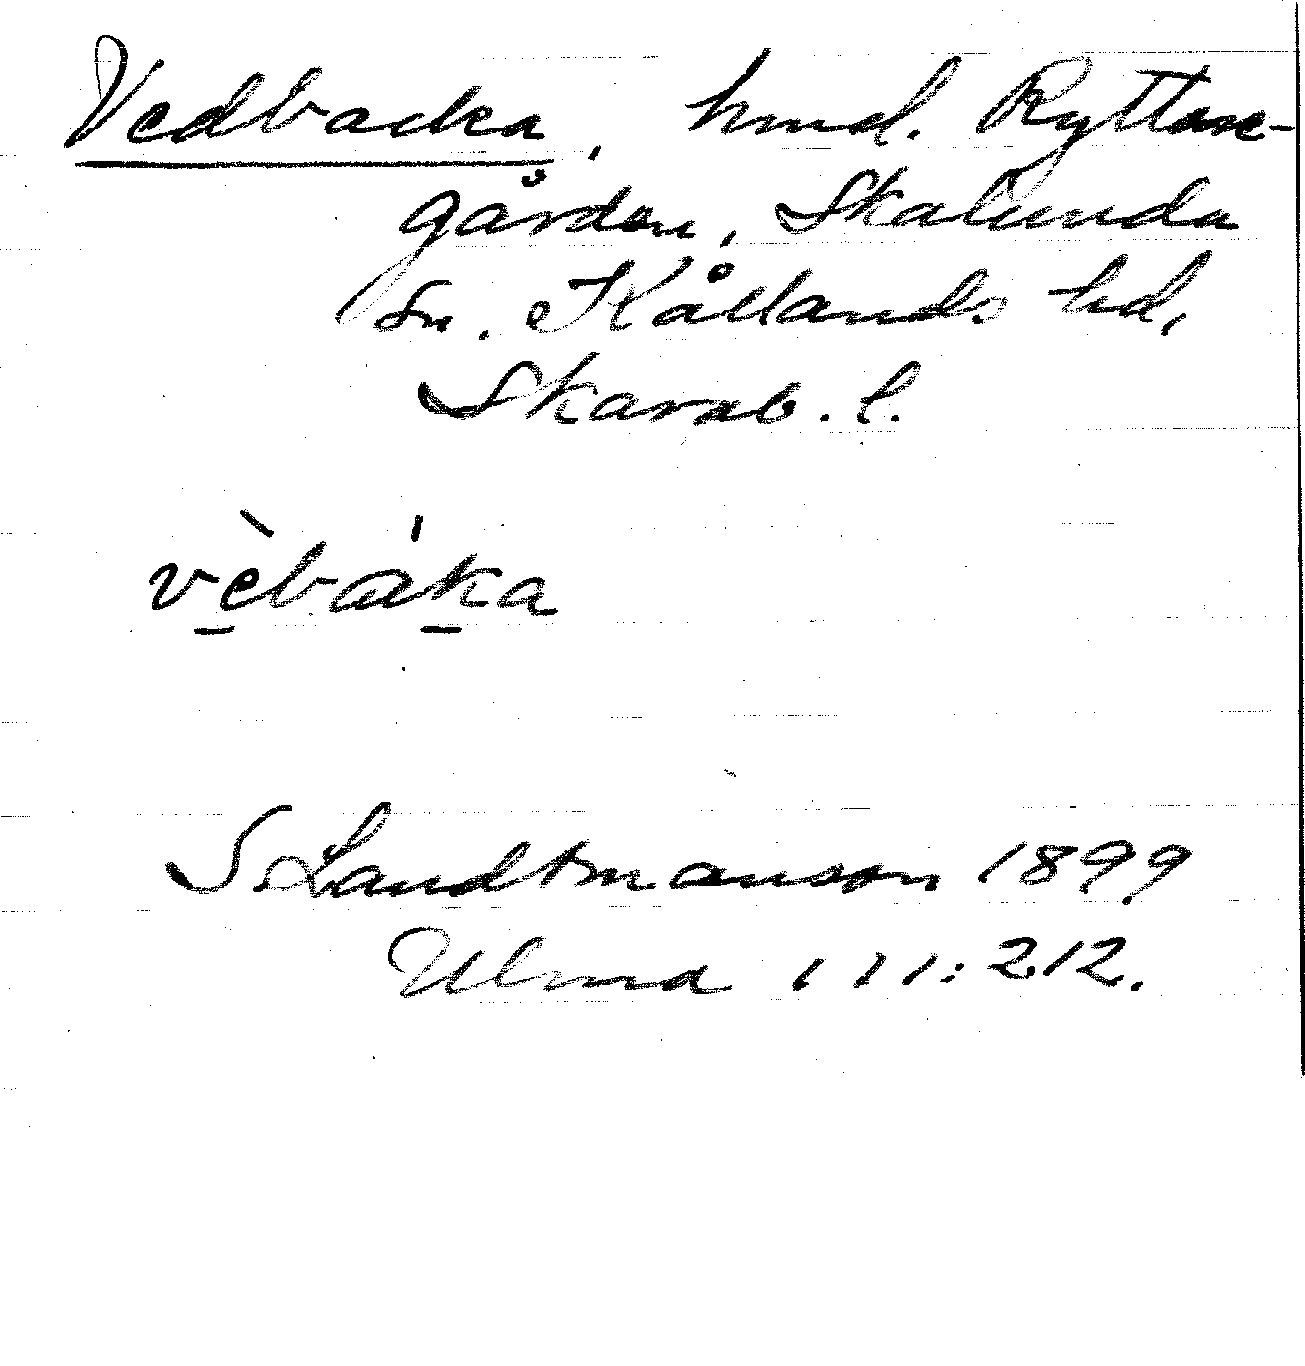 Vedbacka, hmd. Ryttare-
gården, Skalunda
sn. Kållands hd,
Skarab. l.
vèbáka
S. Landtmanson 1899
Ulma 111:212.